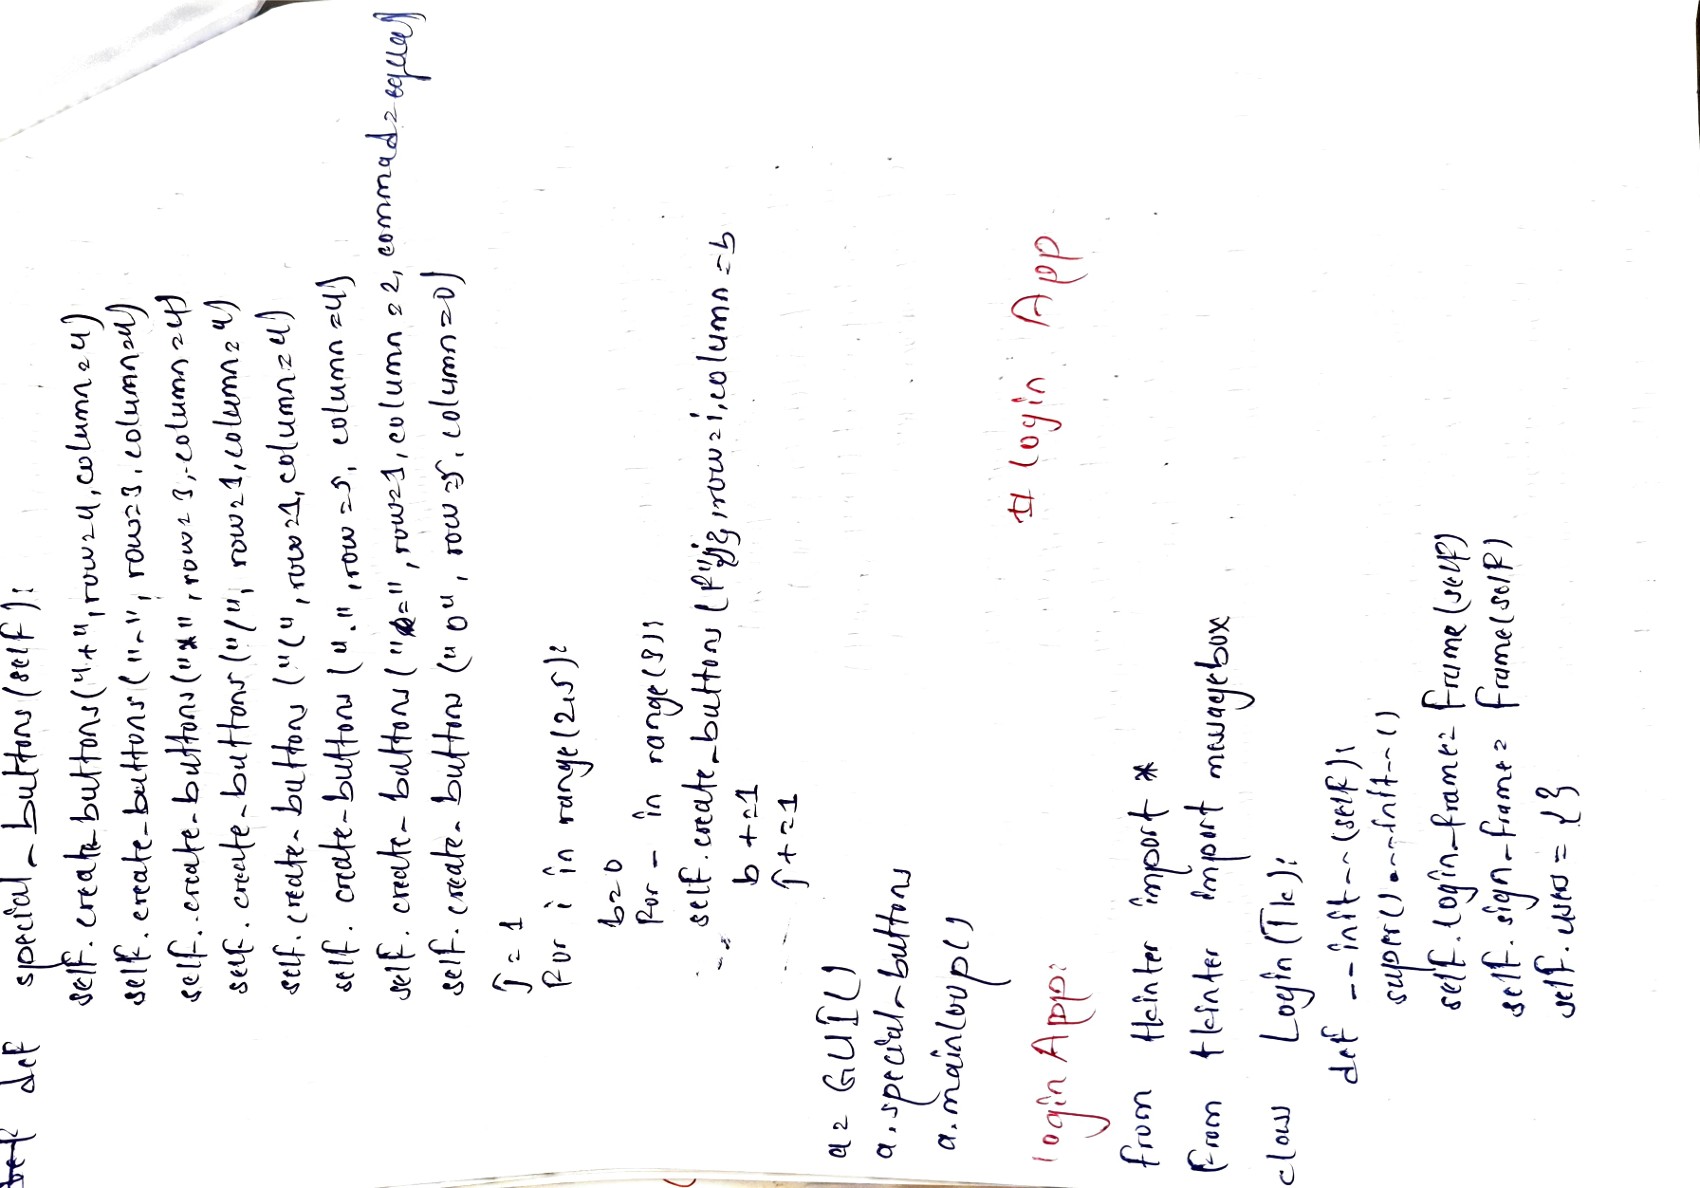 def def special_buttons(self):
self.create_buttons("+",row=4,column=4)
self.create_buttons("-", row=3,column=4)
self.create_buttons("*",row=3,column=4)
self.create_buttons("/", row=1,column=4)
self.create_buttons("(",row=1,column=4)
self.create_buttons(".",row=5, column=4)
self.create_buttons("=",row=1,column=2, commad=equal)
self.create_button("0", row=5, column=0)
J=1
For i in range(2,5):
b=0
For - in range(3):
self.create_buttons(F"{j}",row=i,column=b
b+=1
J+=1
a= GUI()
a.special_buttons
a.mainloop()
login App: # login App
From tkinter import *
From tkinter import messagebox
class Login(Tk):
def __init__(self):
super().__init__()
self.login_frame= Frame(self)
self.sign_frame= Frame(self)
self.users={}